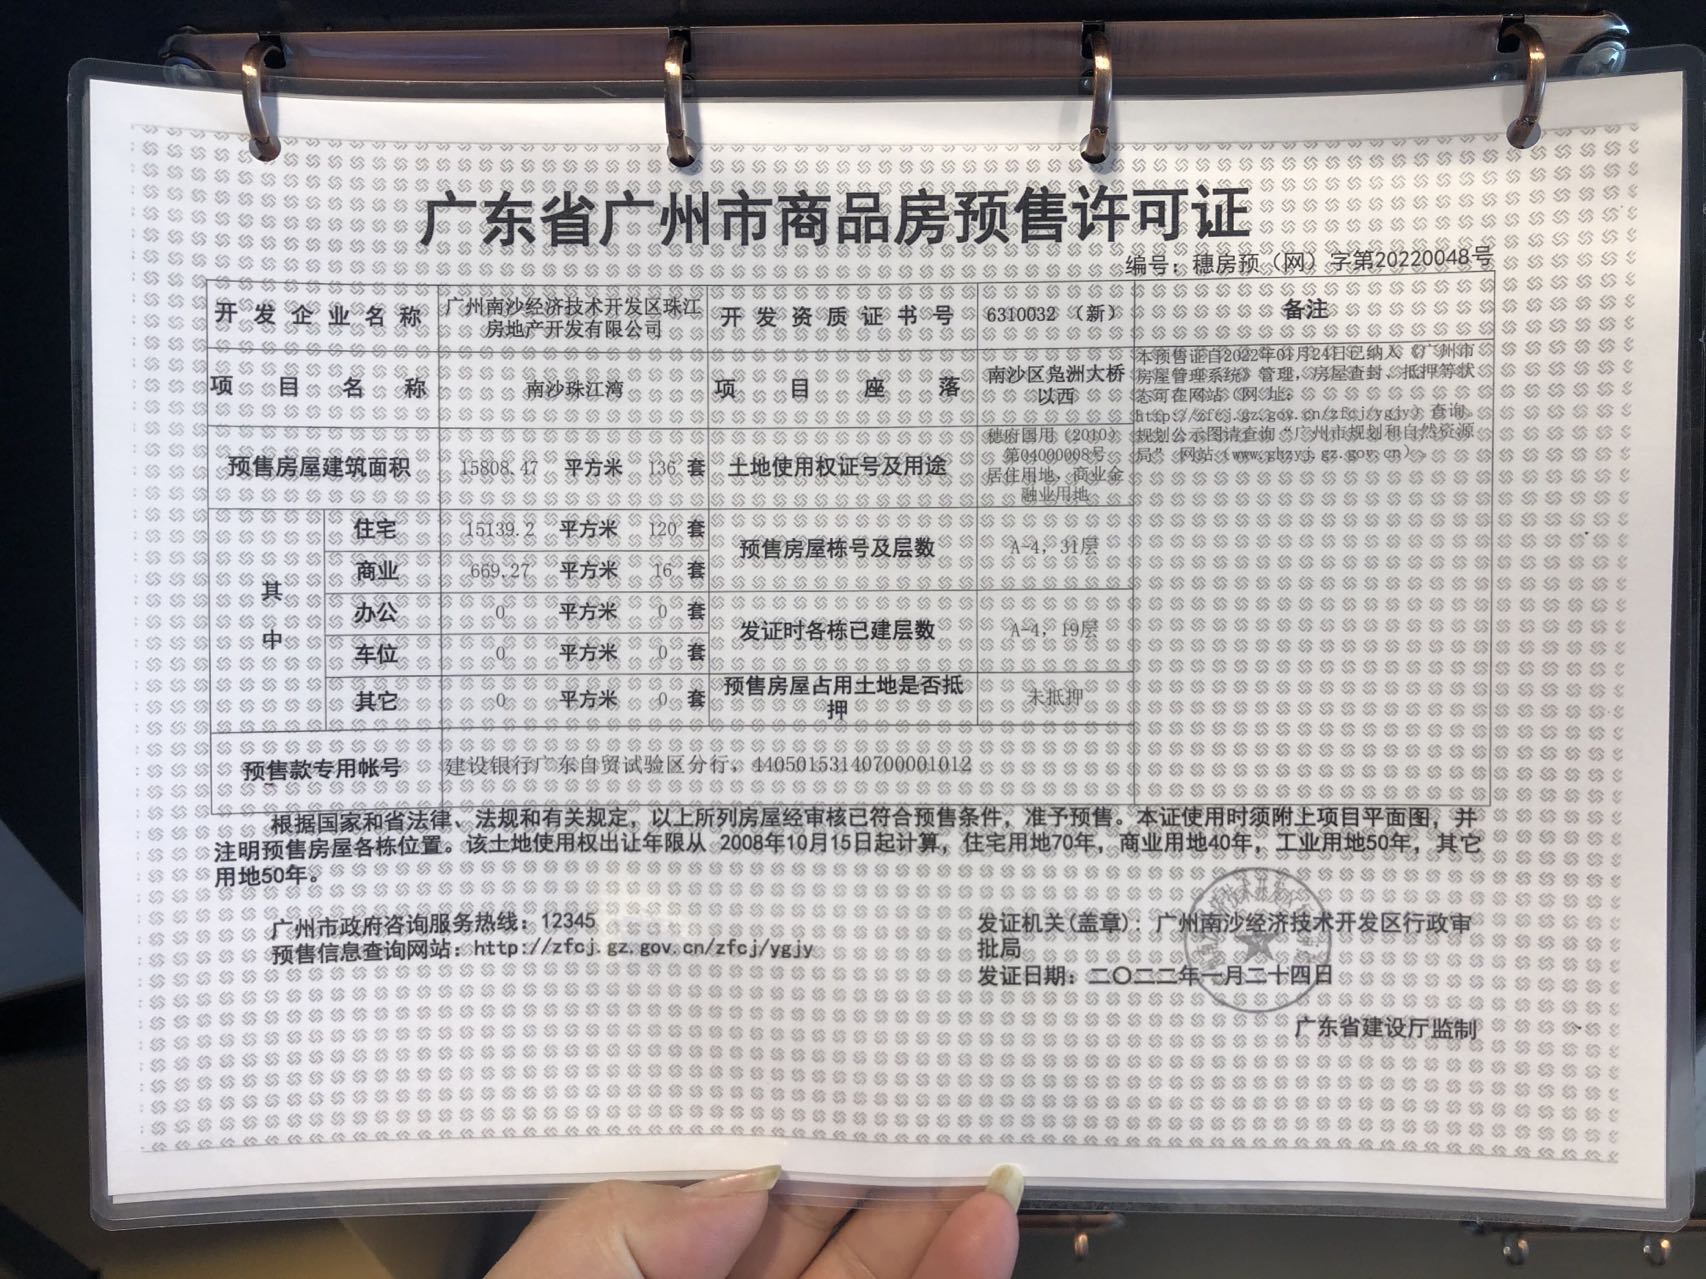 广东省广州市商品房预售许可证
编号：穗房预（网）字第20220048号
开发企业名称
广州南沙经济技术开发区珠江
房地产开发有限公司
开发资质证书号
6310032 （新）
备注
项目名称
南沙珠江湾
项目座落
南沙区凫洲大桥
以西
本预售证自2022年01月24日已纳入《广州市
房屋管理系统》管理，房屋查封、抵押等状
态可在网站（网 址：
http://zfcj.gz.gov.cn/zfcj/ygjy）查询。
规划公示图请查询“广州市规划和自然资源
局” 网站（www.ghzyj.gz.gov.cn）。
预售房屋建筑面积
15808.47 平方米 136 套
土地使用权证号及用途
穗府国用（2010）
第04000008号
居住用地，商业金
融业用地
其
中
住宅
15139.2 平方米 120 套
商业
669.27 平方米 16 套
办公
0 平方米 0 套
车位
0 平方米 0 套
其它
0 平方米 0 套
预售房屋栋号及层数
A-4，31层
发证时各栋已建层数
A-4，19层
预售房屋占用土地是否抵
押
未抵押
预售款专用帐号
建设银行广东自贸试验区分行，44050153140700001012
根据国家和省法律、法规和有关规定，以上所列房屋经审核已符合预售条件，准予预售。本证使用时须附上项目平面图，并
注明预售房屋各栋位置。该土地使用权出让年限从 2008年10月15日起计算，住宅用地70年，商业用地40年，工业用地50年，其它
用地50年。
广州市政府咨询服务热线：12345
预售信息查询网站：http://zfcj.gz.gov.cn/zfcj/ygjy
发证机关(盖章)：广州南沙经济技术开发区行政审
批局
发证日期：二〇二二年一月二十四日
广东省建设厅监制